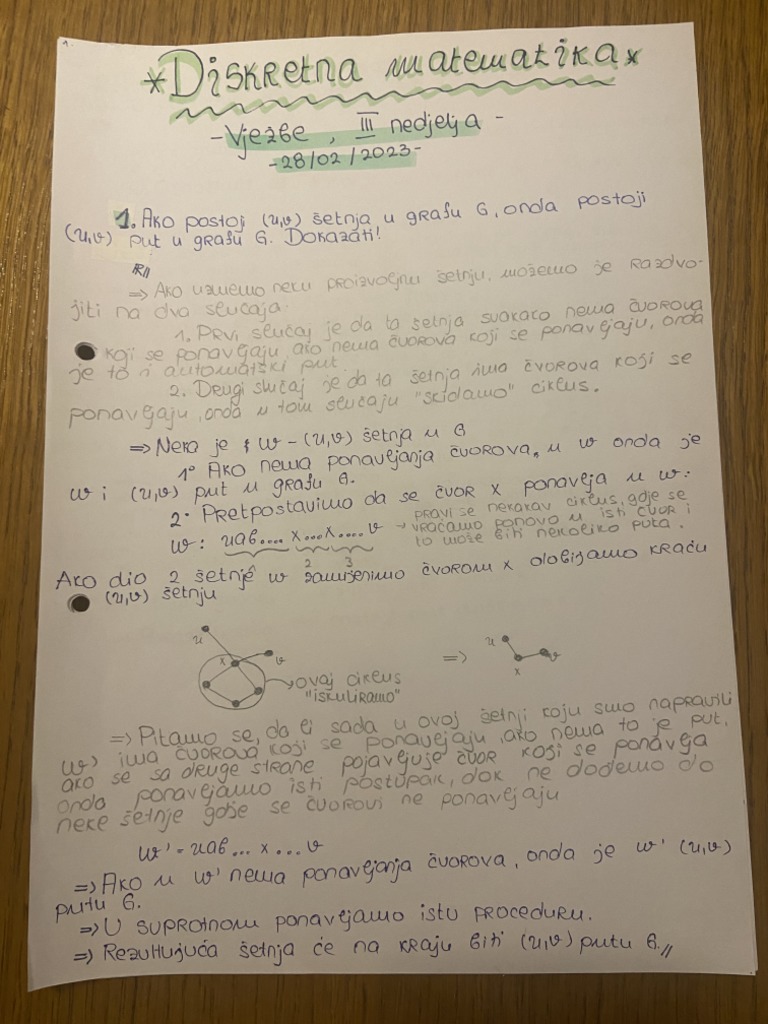 1.
*Diskretna matematika*
- Vježbe, III nedjelja -
- 28/02/2023 -
1. Ako postoji (u,v) šetnja u grafu G, onda postoji
(u,v) put u grafu G. Dokazati!
R//
=> Ako uzmemo neku proizvoljnu šetnju, možemo je razdvo-
jiti na dva slučaja.
1. Prvi slučaj je da ta šetnja svakako nema čvorova
koji se ponavljaju, ako nema čvorova koji se ponavljaju, onda
je to i automatski put.
2. Drugi slučaj je da ta šetnja ima čvorova koji se
ponavljaju, onda u tom slučaju "skidamo" ciklus.
=> Neka je W - (u,v) šetnja u G
1° Ako nema ponavljanja čvorova u W onda je
W i (u,v) put u grafu G.
2° Pretpostavimo da se čvor x ponavlja u W:
W: uab.... x...x.... v → pravi se nekakav ciklus, gdje se
vraćamo ponovo u isti čvor i
to može biti nekoliko puta.
2 3
Ako dio 2 šetnje W zamijenimo čvorom x dobijamo kraću
(u,v) šetnju
u x v → ovaj ciklus
"iskuliramo"
=> u x v
=> Pitamo se, da li sada u ovoj šetnji koju smo napravili
W' ima čvorova koji se ponavljaju, ako nema to je put,
ako se sa druge strane pojavljuje čvor koji se ponavlja
onda ponavljamo isti postupak, dok ne dođemo do
neke šetnje gdje se čvorovi ne ponavljaju
W' = uab... x ... v
=> Ako u W' nema ponavljanja čvorova, onda je W' (u,v)
put u G.
=> U suprotnom ponavljamo istu proceduru.
=> Rezultujuća šetnja će na kraju biti (u,v) put u G.//